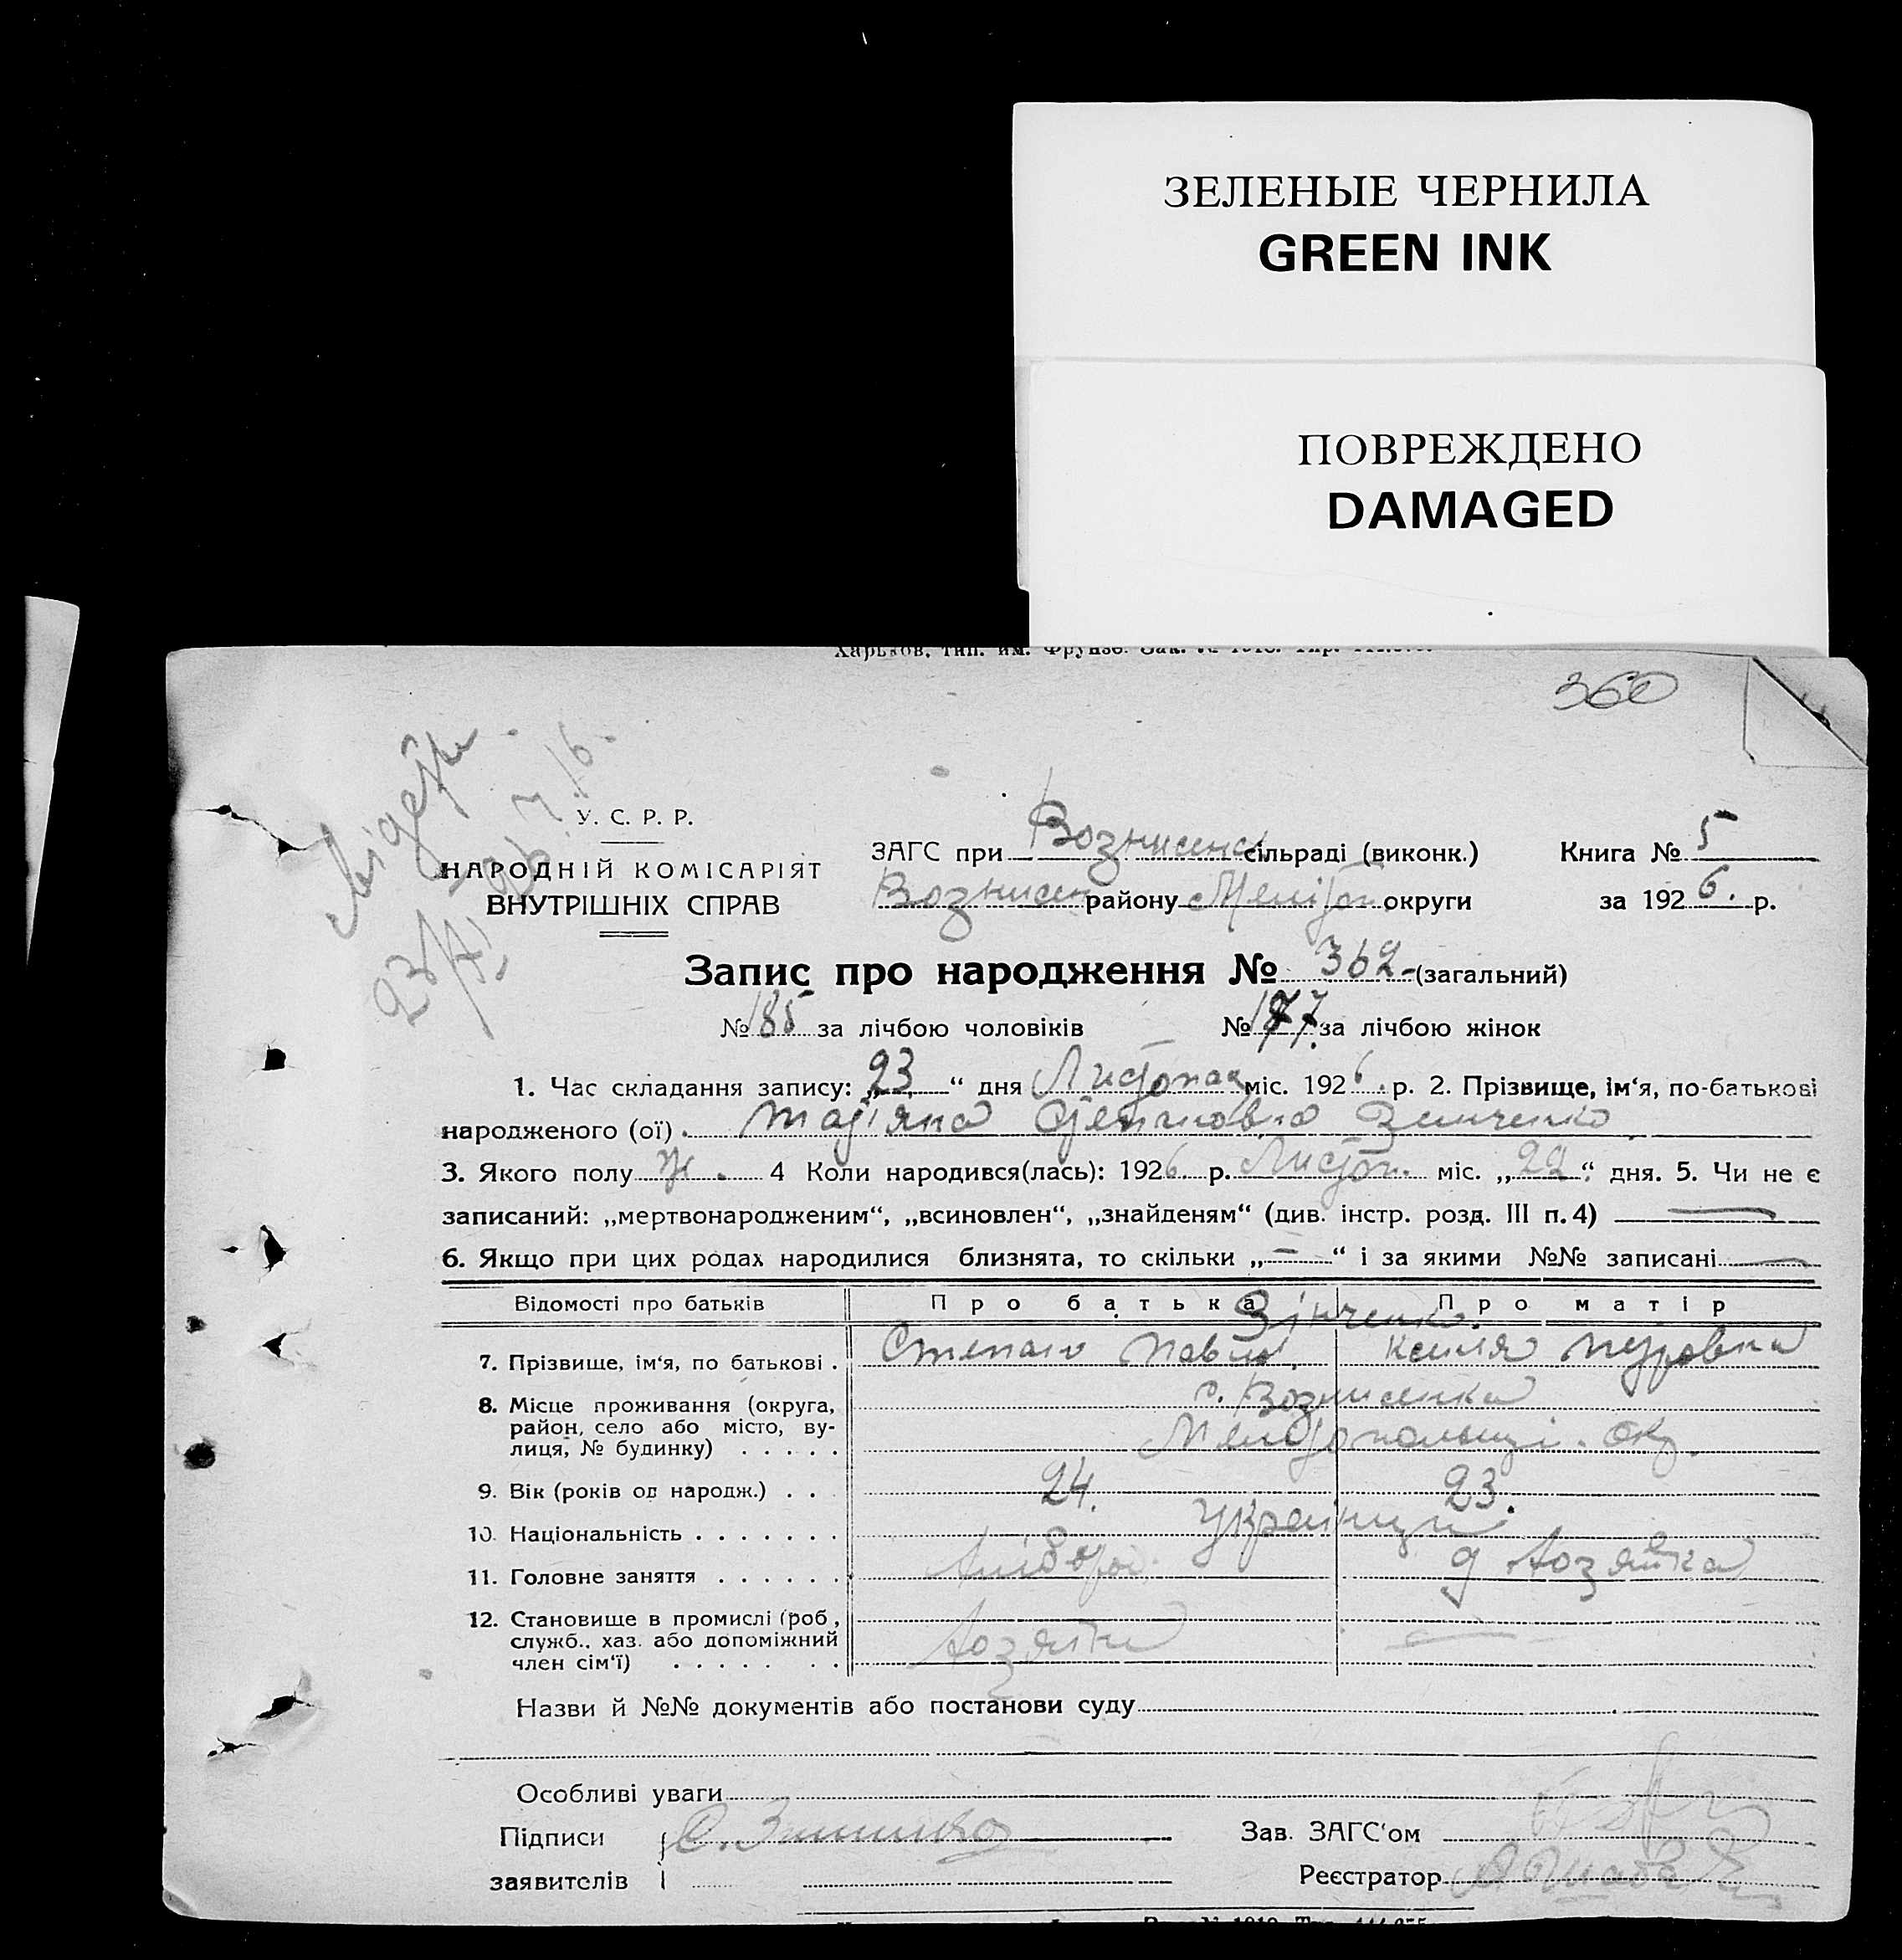 ЗЕЛЕНЫЕ ЧЕРНИЛА
GREEN INK
ПОВРЕЖДЕНО
DAMAGED
Харьков, тип. им. Фрунзе. Зак. №
360
У. С. Р. Р.
НАРОДНІЙ КОМІСАРІЯТ
ВНУТРІШНІХ СПРАВ
ЗАГС при Вознисенс сільраді (виконк.) Книга № 5
Вознисен району Мелітоп. округи за 1926. р.
Запис про народження № 362 (загальний)
№ 185 за лічбою чоловіків № 177. за лічбою жінок
1. Час складання запису: „23“ дня Листопад міс. 1926. р. 2. Прізвище, ім‘я, по-батькові
народженого (ої). Татіяна Степановна Зинченко
3. Якого полу Ж. 4 Коли народився(лась): 1926. р. Листоп. міс. „22“ дня. 5. Чи не є
записаний: „мертвонародженим“, „всиновлен“, „знайденям“ (див. інстр. розд. III п. 4) —
6. Якщо при цих родах народилися близнята, то скільки „—“ і за якими №№ записані —
Відомості про батьків Про батька Про матір
Зінченко.
7. Прізвище, ім‘я, по батькові . Степан Павлов. Петровна
8. Місце проживання (округа, район, село або місто, ву- лиця, № будинку) . . . . .
с. Вознисенка
окр.
9. Вік (років од народж.) . . . 24. 23.
10. Національність . . . . . . . Українці
11. Головне заняття . . . . . . Хлібороб. д. Хозяйка
12. Становище в промислі (роб., служб., хаз. або допоміжний член сім‘ї) . . . . . . .
Хозяін —
Назви й №№ документів або постанови суду
Особливі уваги
Підписи С. Зинченко Зав. ЗАГС‘ом
заявителів Реєстратор